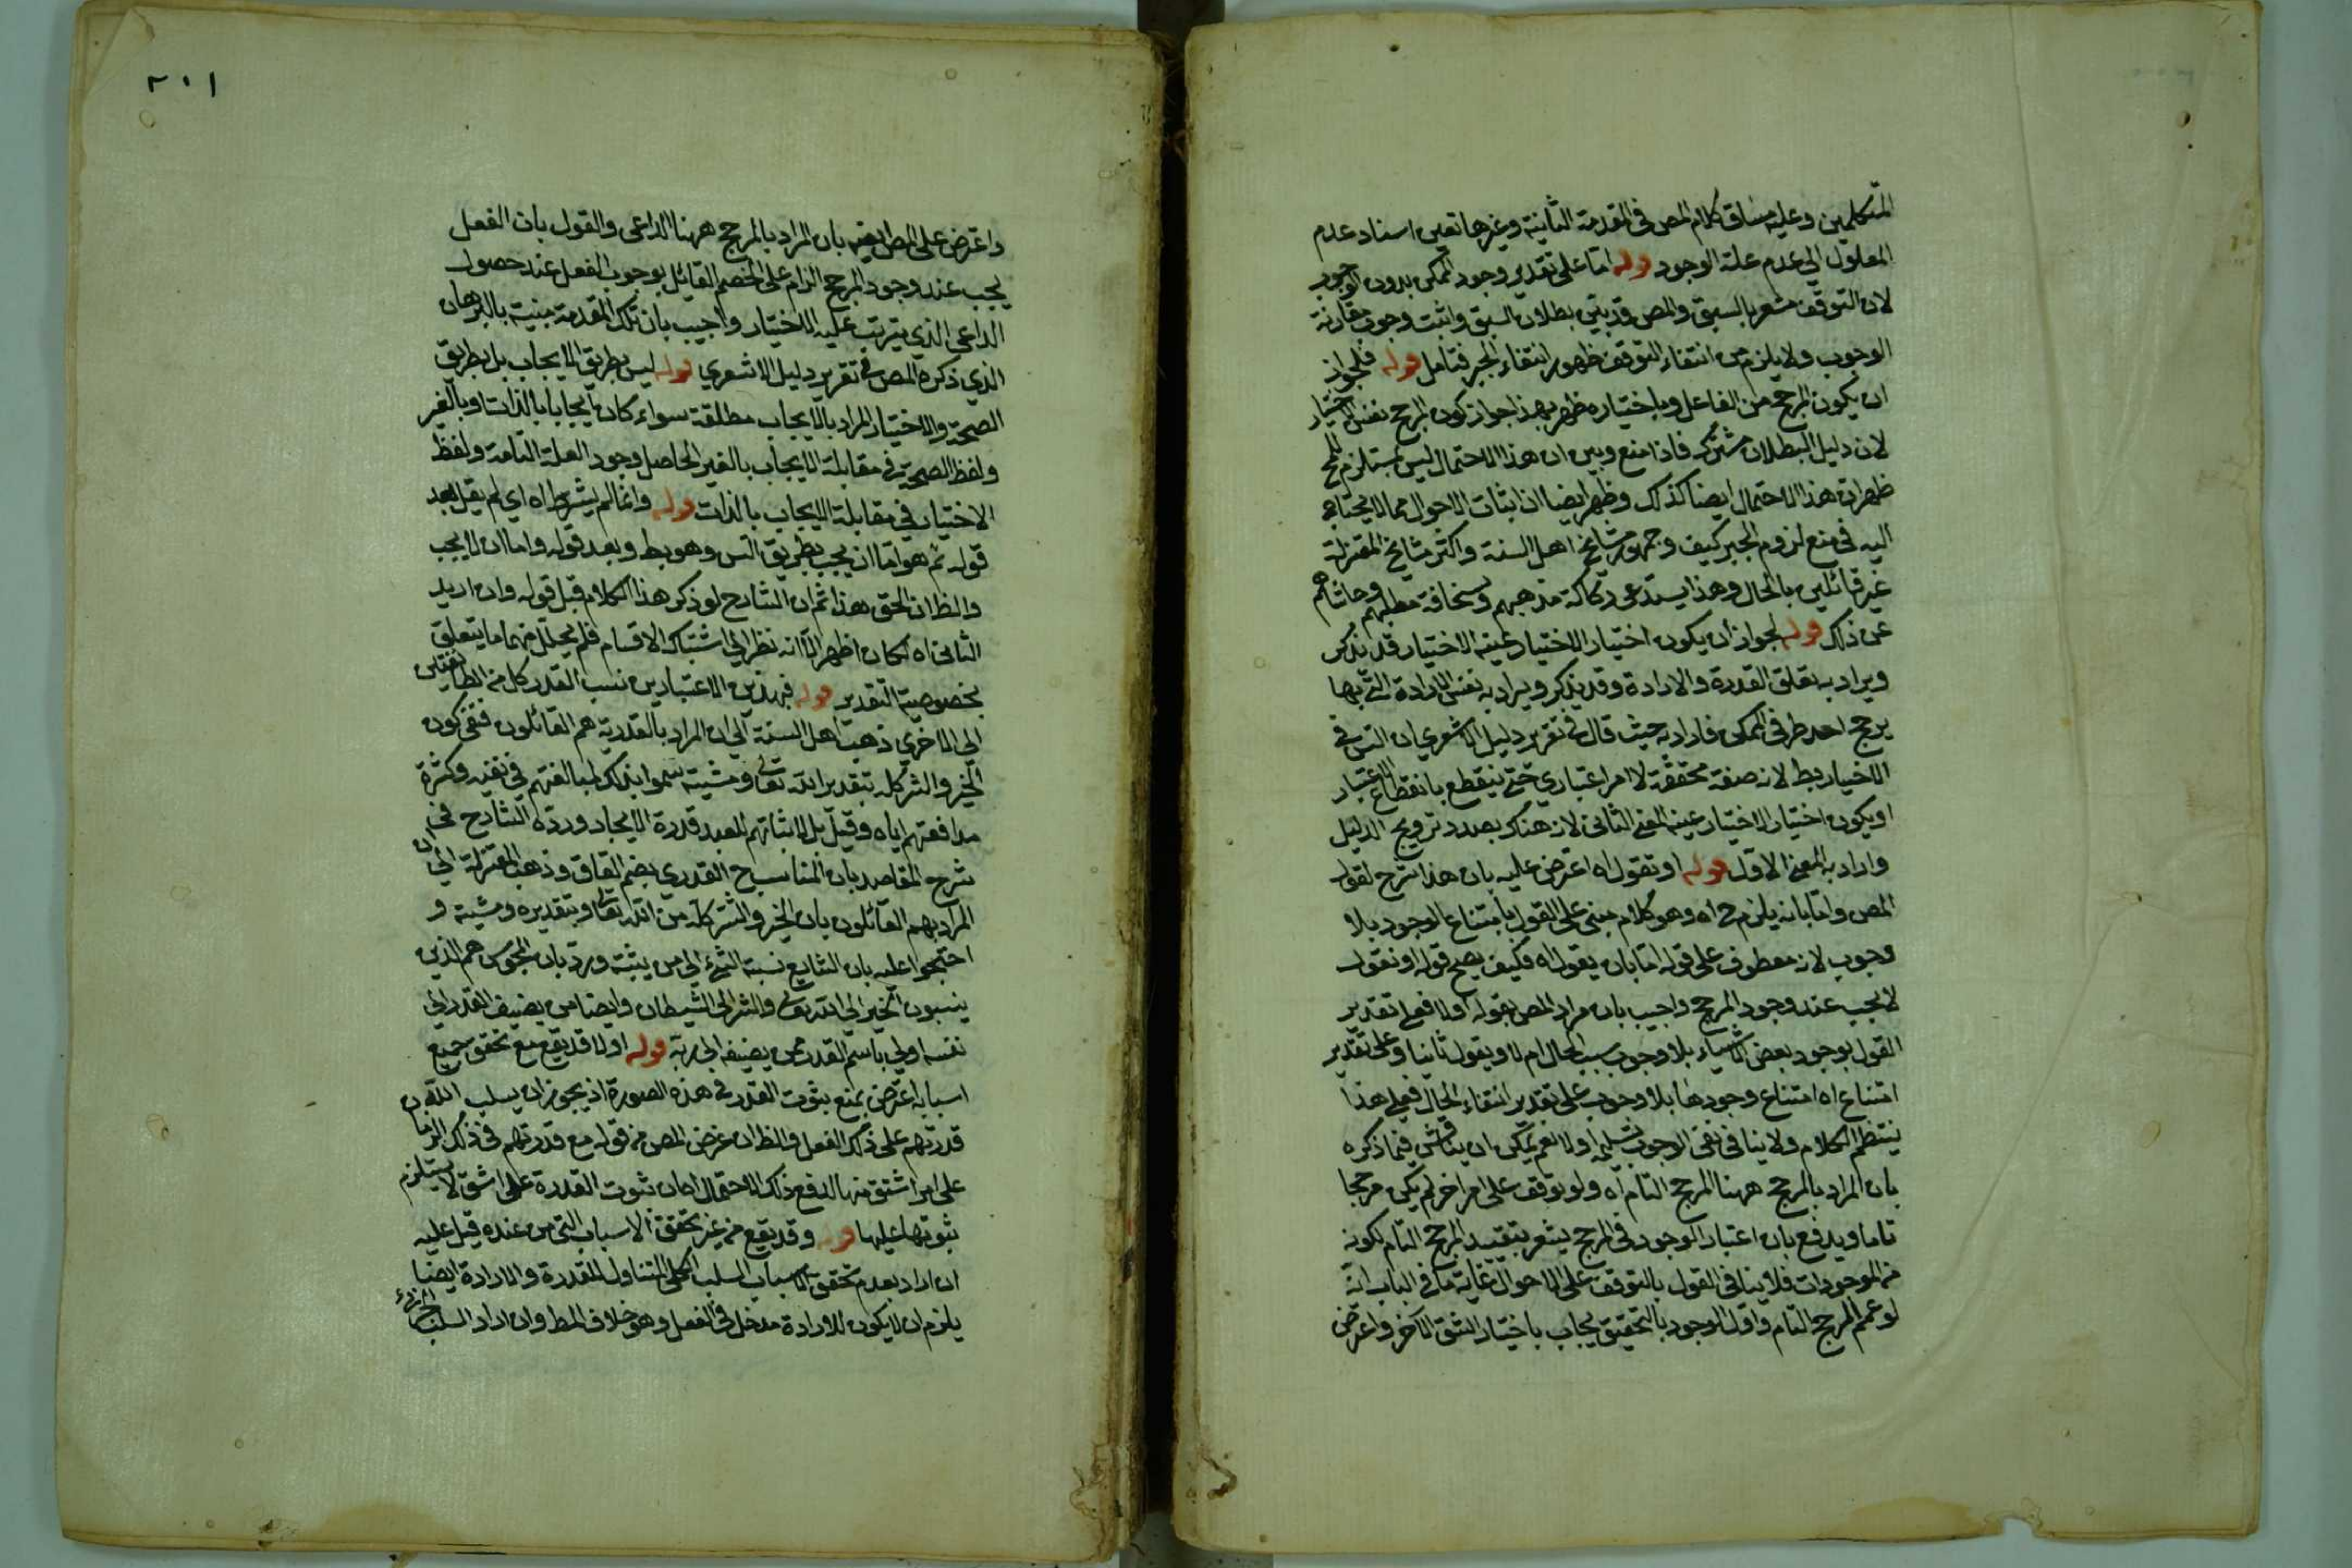 المتكلمين وعليه مساق كلام المص في المقدمة الثانية وغيرها تعين اسناد عدم
المعلول الى عدم علة الوجود قوله اما على تقدير وجود الممكن بدون الوجوب
لان التوقف مشعر بالسبق والمص قد بين بطلان السبق واثبت وجوب مقارنة
الوجوب ولا يلزم من انتفاء التوقف ظهور انتفاء الجبر فتامل قوله فلجواز
ان يكون المرجح من الفاعل وباختياره ظهر بهذا جواز كون المرجح نفس الاختيار
لان دليل البطلان مشترك فاذا منع وبين ان هذا الاحتمال ليس بمستلزم للمح
ظهر ان هذا الاحتمال ايضا كذلك وظهر ايضا ان اثبات الاحوال مما لا يحتاج
اليه في منع لزوم الجبر كيف وجمهور مشايخ اهل السنة واكثر مشايخ المعتزلة
غير قائلين بالحال وهذا يستدعى ركاكة مذهبهم وسخافة مطلبهم وحاشاهم
عن ذلك قوله لجواز ان يكون اختيار الاختيار عين الاختيار قد يذكر
ويراد به تعلق القدرة والارادة وقد يذكر ويراد به نفس الارادة التي بها
يرجح احد طرفي الممكن فاراد به حيث قال في تقرير دليل الاشعري ان التس في
الاختيار بط لانه صفة محققة لا امر اعتباري حتى ينقطع بانقطاع الاعتبار
او يكون اختيار الاختيار عينه المعنى الثاني لانه هناك بصدد ترويج الدليل
واراد به المعنى الاول قوله او تقول اه اعترض عليه بان هذا شرح لقول
المص واما بانه يلزم ح اه وهو كلام مبنى على القول بامتناع الوجود بلا
وجوب لانه معطوف على قوله اما بان يقول اه فكيف يصح قوله او نقول
لا يجب عند وجود المرجح واجيب بان مراد المص بقوله اولا فعلى تقدير
القول بوجود بعض الاشياء بلا وجوب سبب الحال ام لا ويقول ثانيا وعلى تقدير
امتناع اه امتناع وجودها بلا وجوب على تقدير انتفاء الحال فعلى هذا
ينتظم الكلام ولا ينافى نفى الوجوب تسليمه اولا نعم يمكن ان يناقش فيما ذكره
بان المراد بالمرجح ههنا المرجح التام اه ولو توقف على امر اخر لم يكن مرجحا
تاما ويدفع بان اعتبار الوجود في المرجح يشعر بتقييد المرجح التام لكونه
من الموجودات فلا ينافى القول بالتوقف على الاحوال غاية ما في الباب انه
لو عمم المرجح التام واول الوجود بالتحقيق يجاب باختيار الشق الاخر واعترض
٢٠١
واعترض على المص ايضا بان المراد بالمرجح ههنا الداعى والقول بان الفعل
يجب عند وجود المرجح الزام على الخصم القائل بوجوب الفعل عند حصول
الداعى الذي يترتب عليه الاختيار واجيب بان تلك المقدمة مبنية بالبرهان
الذي ذكره المص في تقرير دليل الاشعري قوله ليس بطريق الايجاب بل بطريق
الصحة والاختيار المراد بالايجاب مطلقة سواء كان ايجابا بالذات او بالغير
ولفظ الصحة في مقابلة الايجاب بالغير الحاصل وجود العلة التامة ولفظ
الاختيار في مقابلة الايجاب بالذات قوله وانما لم يشرط اه اي لم يقل بعد
قوله ثم هو اما ان يجب بطريق التس وهو بط وبعد قوله واما ان لا يجب
والظ ان الحق هذا ثم ان الشارح لو ذكر هذا الكلام قبل قوله وان اريد
الثاني اه لكان اظهر الا انه نظر الى اشتباك الاقسام فلم يخلل منهما ما يتعلق
بخصوصية التقدير قوله فبهذين الاعتبارين نسب القدر كل من الطائفتين
الى الاخرى ذهب اهل السنة الى ان المراد بالقدرية هم القائلون بنفى كون
الخير والشر كله بتقدير الله تعالى ومشيته سموا بذلك لمبالغتهم في نفيه وكثرة
مدافعتهم اياه وقيل بل لاثباتهم للعبد قدرة الايجاد ورده الشارح في
شرح المقاصد بان المناسب ح القدري بضم القاف وذهب المعتزلة الى ان
المراد بهم القائلون بان الخير والشر كله من الله تعالى وبتقديره ومشيته و
احتجوا عليه بان الشايع نسبة الشئ الى من يثبته ورد بان المجوس هم الذين
ينسبون الخير الى الله تعالى والشر الى الشيطان وايضا من يضيف القدر الى
نفسه اولى باسم القدر ممن يضيفه الى ربه قوله اولا قد يقع مع تحقق جميع
اسبابه اعترض بمنع بثوت القدر في هذه الصورة اذ يجوز ان يسلب الله
قدرتهم على ذلك الفعل والظ ان غرض المص من قوله مع قدرتهم في ذلك الزمان
على امر اشق منها لدفع ذلك الاحتمال فان ثبوت القدرة على اشق لا يستلزم
ثبوتها عليها قوله وقد يقع من غير تحقق الاسباب التي من عنده قيل عليه
ان اراد بعدم تحقق الاسباب السلب الكلي المتناول للقدرة والارادة ايضا
يلزم ان لا يكون للارادة مدخل في الفعل وهو خلاف المط وان اراد السلب الجزئ